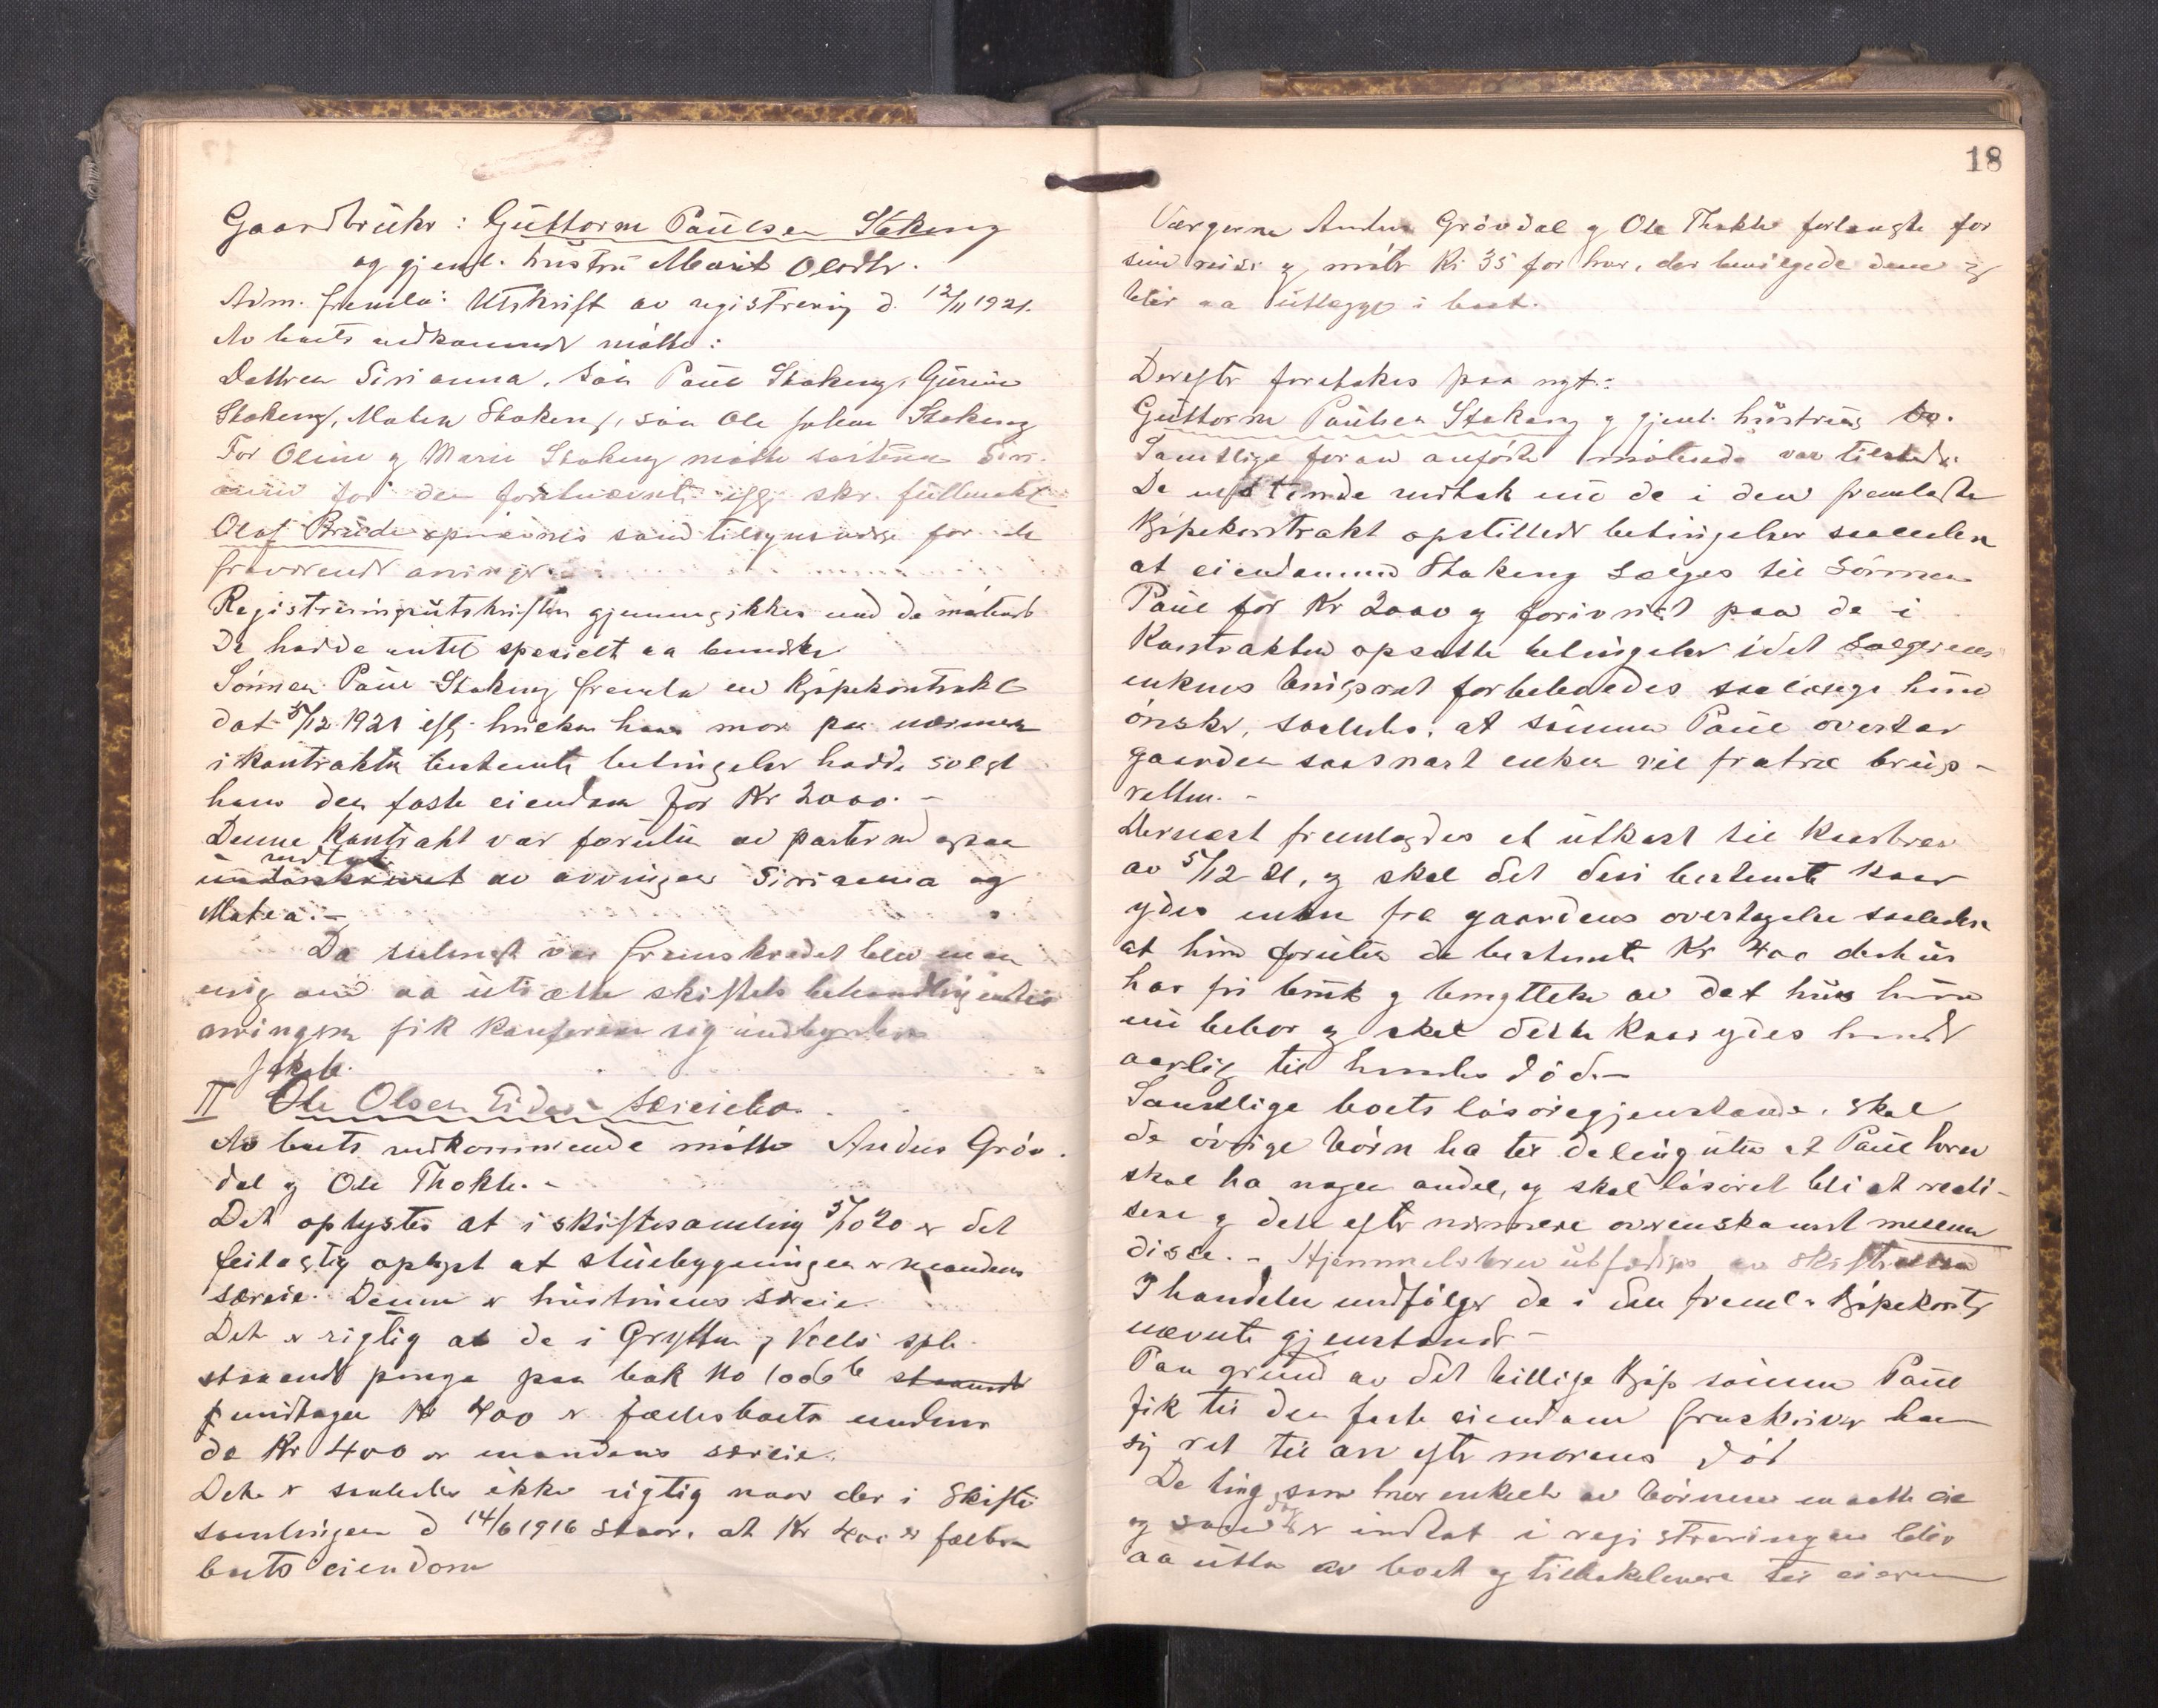 Gaardbruker: Guttorm Paulsen Stokeng
og gjenl. hustru Marit Olsdtr.
Adm. fremla: Utskrift av registrering d. 12/11 1921.
Av boets vedkommende møtte:
Dattren Sirianna, søn Paul Stokeng, Gurine
Stokeng, Matea Stokeng, søn Ole Johan Stokeng
For Oline og Marie Stokeng møtte søsteren Siri-
anna for den førstnævnte iflg. skr. fullmakt
Olaf Brude opnævnes som tilsynsværge for de
fraværende arvinger
Registreringsutskriften gjennemgikkes med de møtende
De hadde intet specielt aa bemerke
Sønnen Paul Stokeng fremla en kjøpekontrakt
dat 5/12 1921 iflg. hvilken hans mor paa nærmere
i kontrakten bestemte betingelser hadde solgt
ham den faste eiendom for Kr 2000.-
Denne kontrakt var foruten av parterne ogsaa
vedtat
underskrevet av arvingene Sirianna og
Matea.-
Da saalangt var fremskredet blev man
enig om aa utsætte skiftets behandling indtil
arvingerne fik konferere sig imellem
II Ole Olsen Eides særeiebo.
Av boets vedkommende møtte Anders Grøv-
dal og Ole Thokle.-
Det oplystes at i skiftesamling 5/10 20 er det
feilagtig oplyst at stuebygningen er mandens
særeie. Denne er hustruens særeie.
Det er rigtig at de i Grytten og Veøs spb.
staaende penge paa bok No 1006 b staaende
undtagen Kr 400 er fællesboets medens
de Kr 400 er mandens særeie.
Det er saaledes ikke rigtig naar der i skifte
samlingen d 14/6 1916 staar, at Kr 400 er fælles
boets eiendom
18
Værgerne Anders Grøvdal og Ole Thokle forlangte for
sine reiser og møte Kr 35 for hver, der bevilgedes dem og
blir aa utlægge i boet.
Derefter foretokes paa nyt:
Guttorm Paulsen Stokeng og gjenl. hustrus bo.
Samtlige foran anførte møtende var tilstede.
De møtende vedtok nu de i den fremlagte
kjøpekontrakt opstillede betingelser saaledes
at eiendommen Stokeng sælges til sønnen
Paul for Kr 2000 og forøvrigt paa de i
kontrakten opsatte betingelser idet sælgeren
enkens bruksret forbeholdes saalænge hun
ønsker, saaledes, at sønnen Paul overtar
gaarden saasnart enken vil fratræ bruks-
retten.-
Dernæst fremlagdes et utkast til kaarbrev
av 5/12 21, og skal det deri bestemte kaar
ydes enken fra gaardens overtagelse saaledes
at hun foruten de bestemte Kr 400 desuten
har fri bruk og benyttelse av det hus hun
nu bebor og skal dette kaar ydes hende
aarlig til hendes død.-
Samtlige boets løsøregjenstande, skal
de øvrige børn ha til deling uten at Paul herav
skal ha nogen andel, og skal løsøret bli at reali-
sere og dele efter nærmere overenskomst mellem
disse.- Hjemmelsbrev utfærdiges av skifteretten
I handelen medfølger de i den freml. kjøpekontr
nævnte gjenstande-
Paa grund av det billige kjøp sønnen Paul
fik til den faste eiendom fraskriver han
sig ret til arv efter morens død
De ting som hver enkelt av børnene maatte eie
og som er indtat i registreringen blir
aa utta av boet og tilbakelevere til eieren